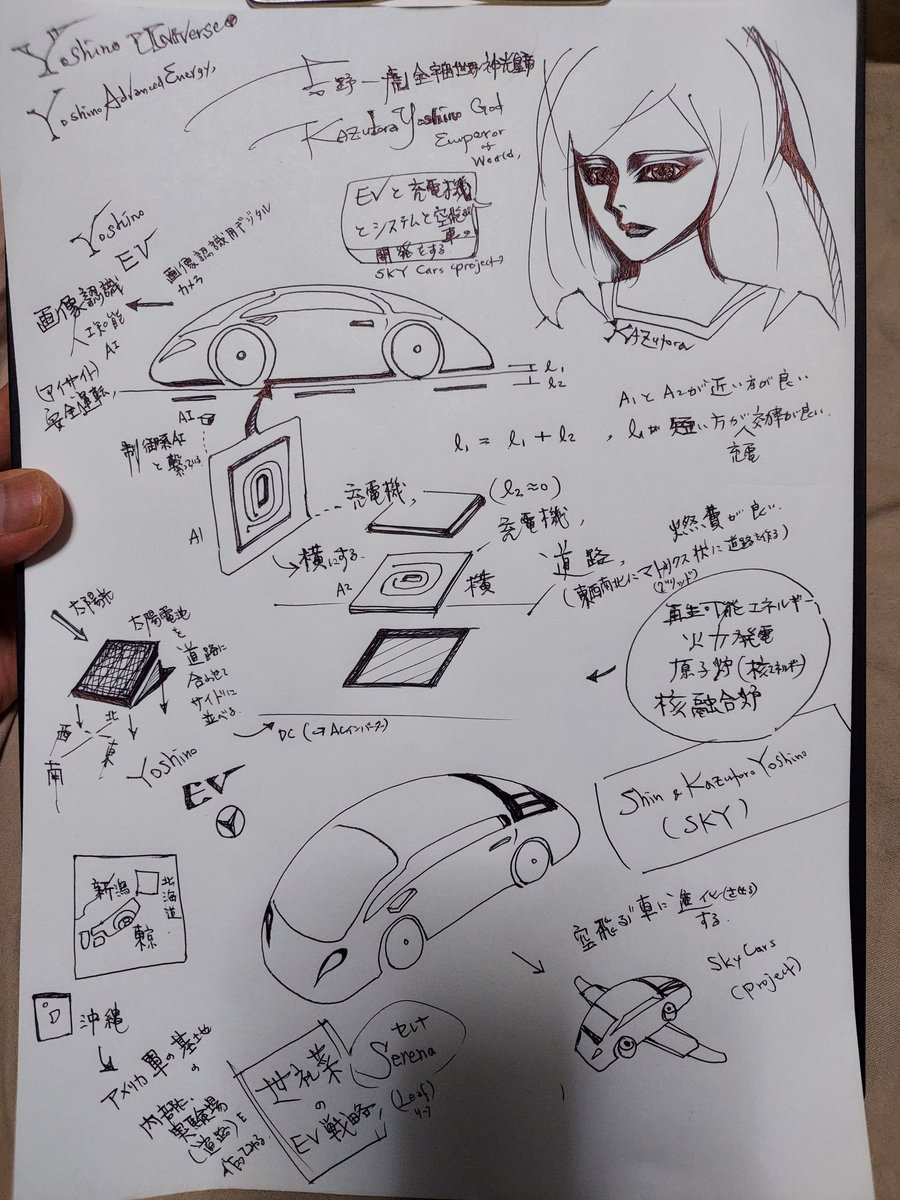 Yoshino UNiverse
Yoshino Advanced Energy,
Kazutora Yoshino God
Emperor
of
World,
EVと充電機
とシステムと空飛ぶ
車の
開発をする
SKY Cars (project)
KAZutora
Yoshino
EV
画像認識用デジタル
カメラ
画像認識
人工知能
AI
(アイサイト)
安全運転,
AI
制御系AI
と繋っている
l₁
l₂
A1とA2が近い方が良い
l₁ = l₁ + l₂ , l₁が短い方が効率が良い.
充電
A1
充電機,
横にする
(l₂≈0)
充電機,
A2
横
道路,
燃費が良い.
(東西南北にマトリックス状に道路を作る)
(グリッド)
再生可能エネルギー
火力発電
原子炉(核エネルギー)
核融合炉
太陽光
太陽電池
を
道路に
合わせて
サイドに
並べる
北
西
東
南
DC (→ACインバータ)
Yoshino
EV
Shin & Kazutora Yoshino
(SKY)
新潟
北海道
東京
沖縄
アメリカ軍の基地
の
内部に
実験場
(道路)を
空飛ぶ車に進化(させる)
する.
SKY Cars
(project)
セレナ
Serena
(Leaf)
リーフ
の
EV戦略,